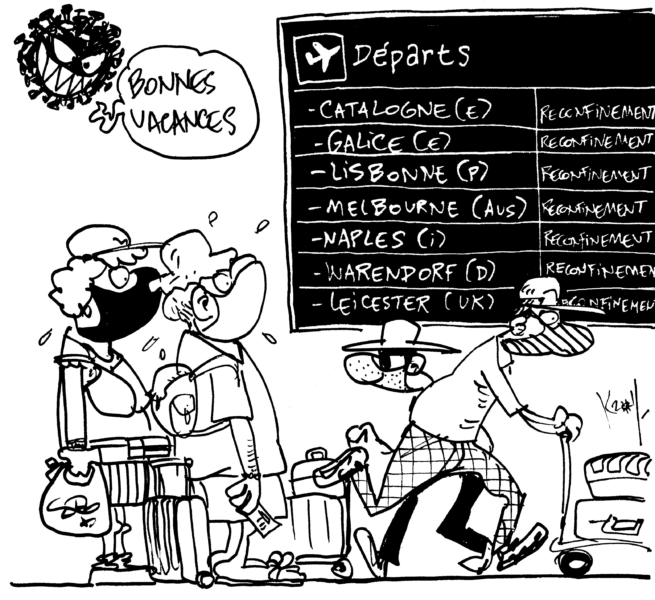 BONNES
VACANCES
Départs
-CATALOGNE (E) RECONFINEMENT
-GALICE (E) RECONFINEMENT
-LISBONNE (P) RECONFINEMENT
-MELBOURNE (AUS) RECONFINEMENT
-NAPLES (i) RECONFINEMENT
-WARENDORF (D) RECONFINEMEN
-LEICESTER (UK) RECONFINEMENT